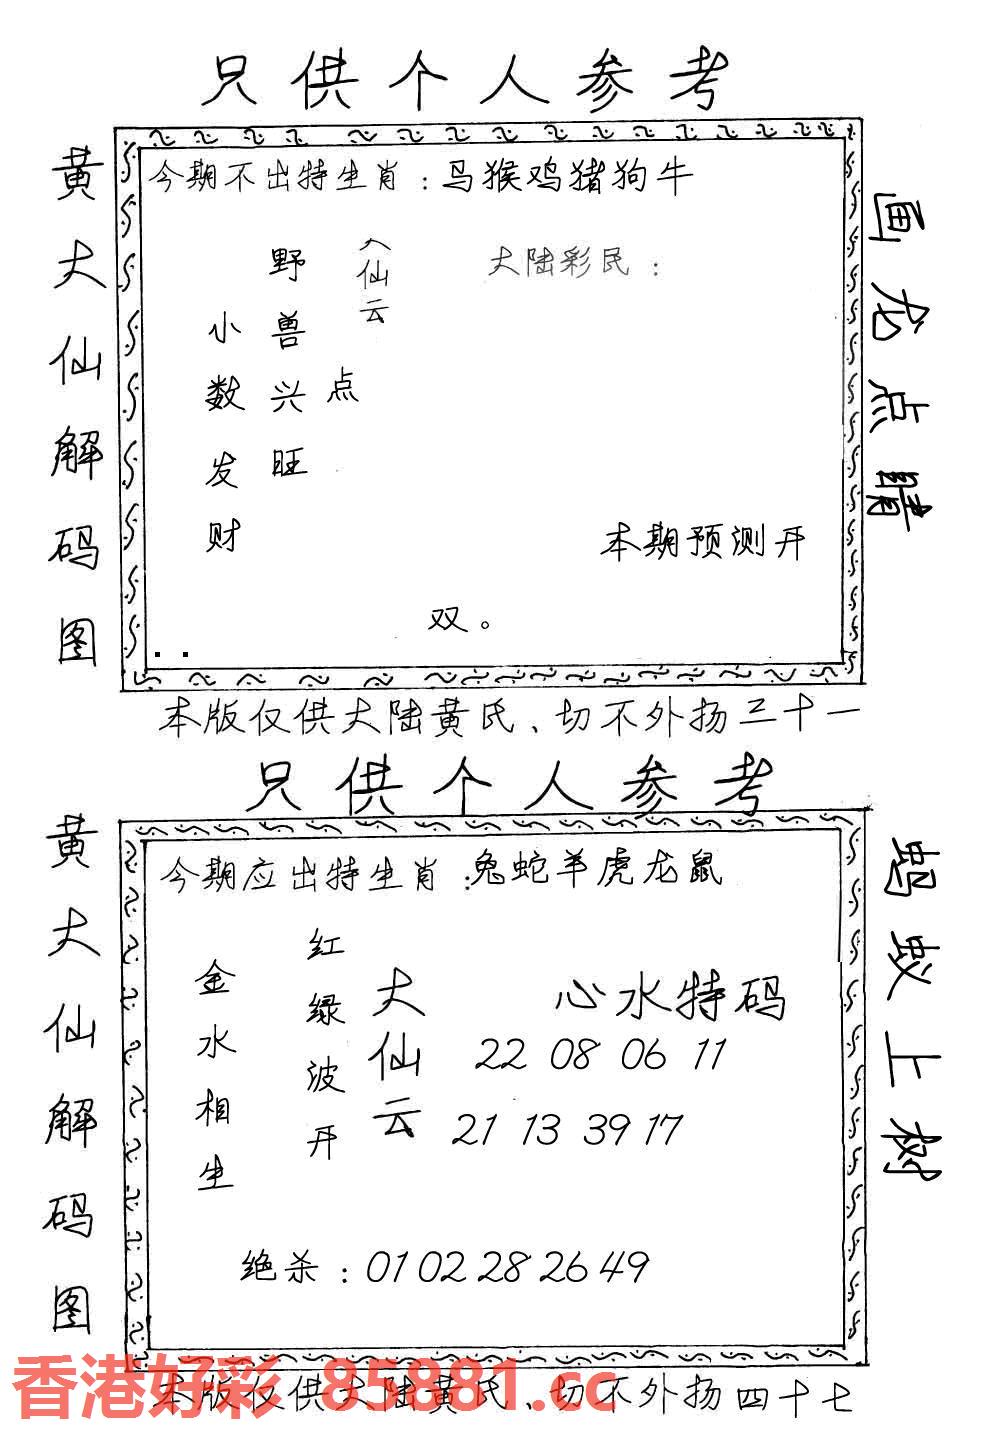 只供个人参考
黄大仙解码图
今期不出特生肖：马猴鸡猪狗牛
画龙点睛
小数发财
野兽兴旺
大仙云
点
大陆彩民：
本期预测开
双。
本版仅供大陆黄氏、切不外扬三十一
只供个人参考
黄大仙解码图
今期应出特生肖：兔蛇羊虎龙鼠
蚂蚁上树
金水相生
红绿波开
大仙云
心水特码
22 08 06 11
21 13 39 17
绝杀：01 02 28 26 49
香港好彩 85881.cc
本版仅供大陆黄氏、切不外扬四十七